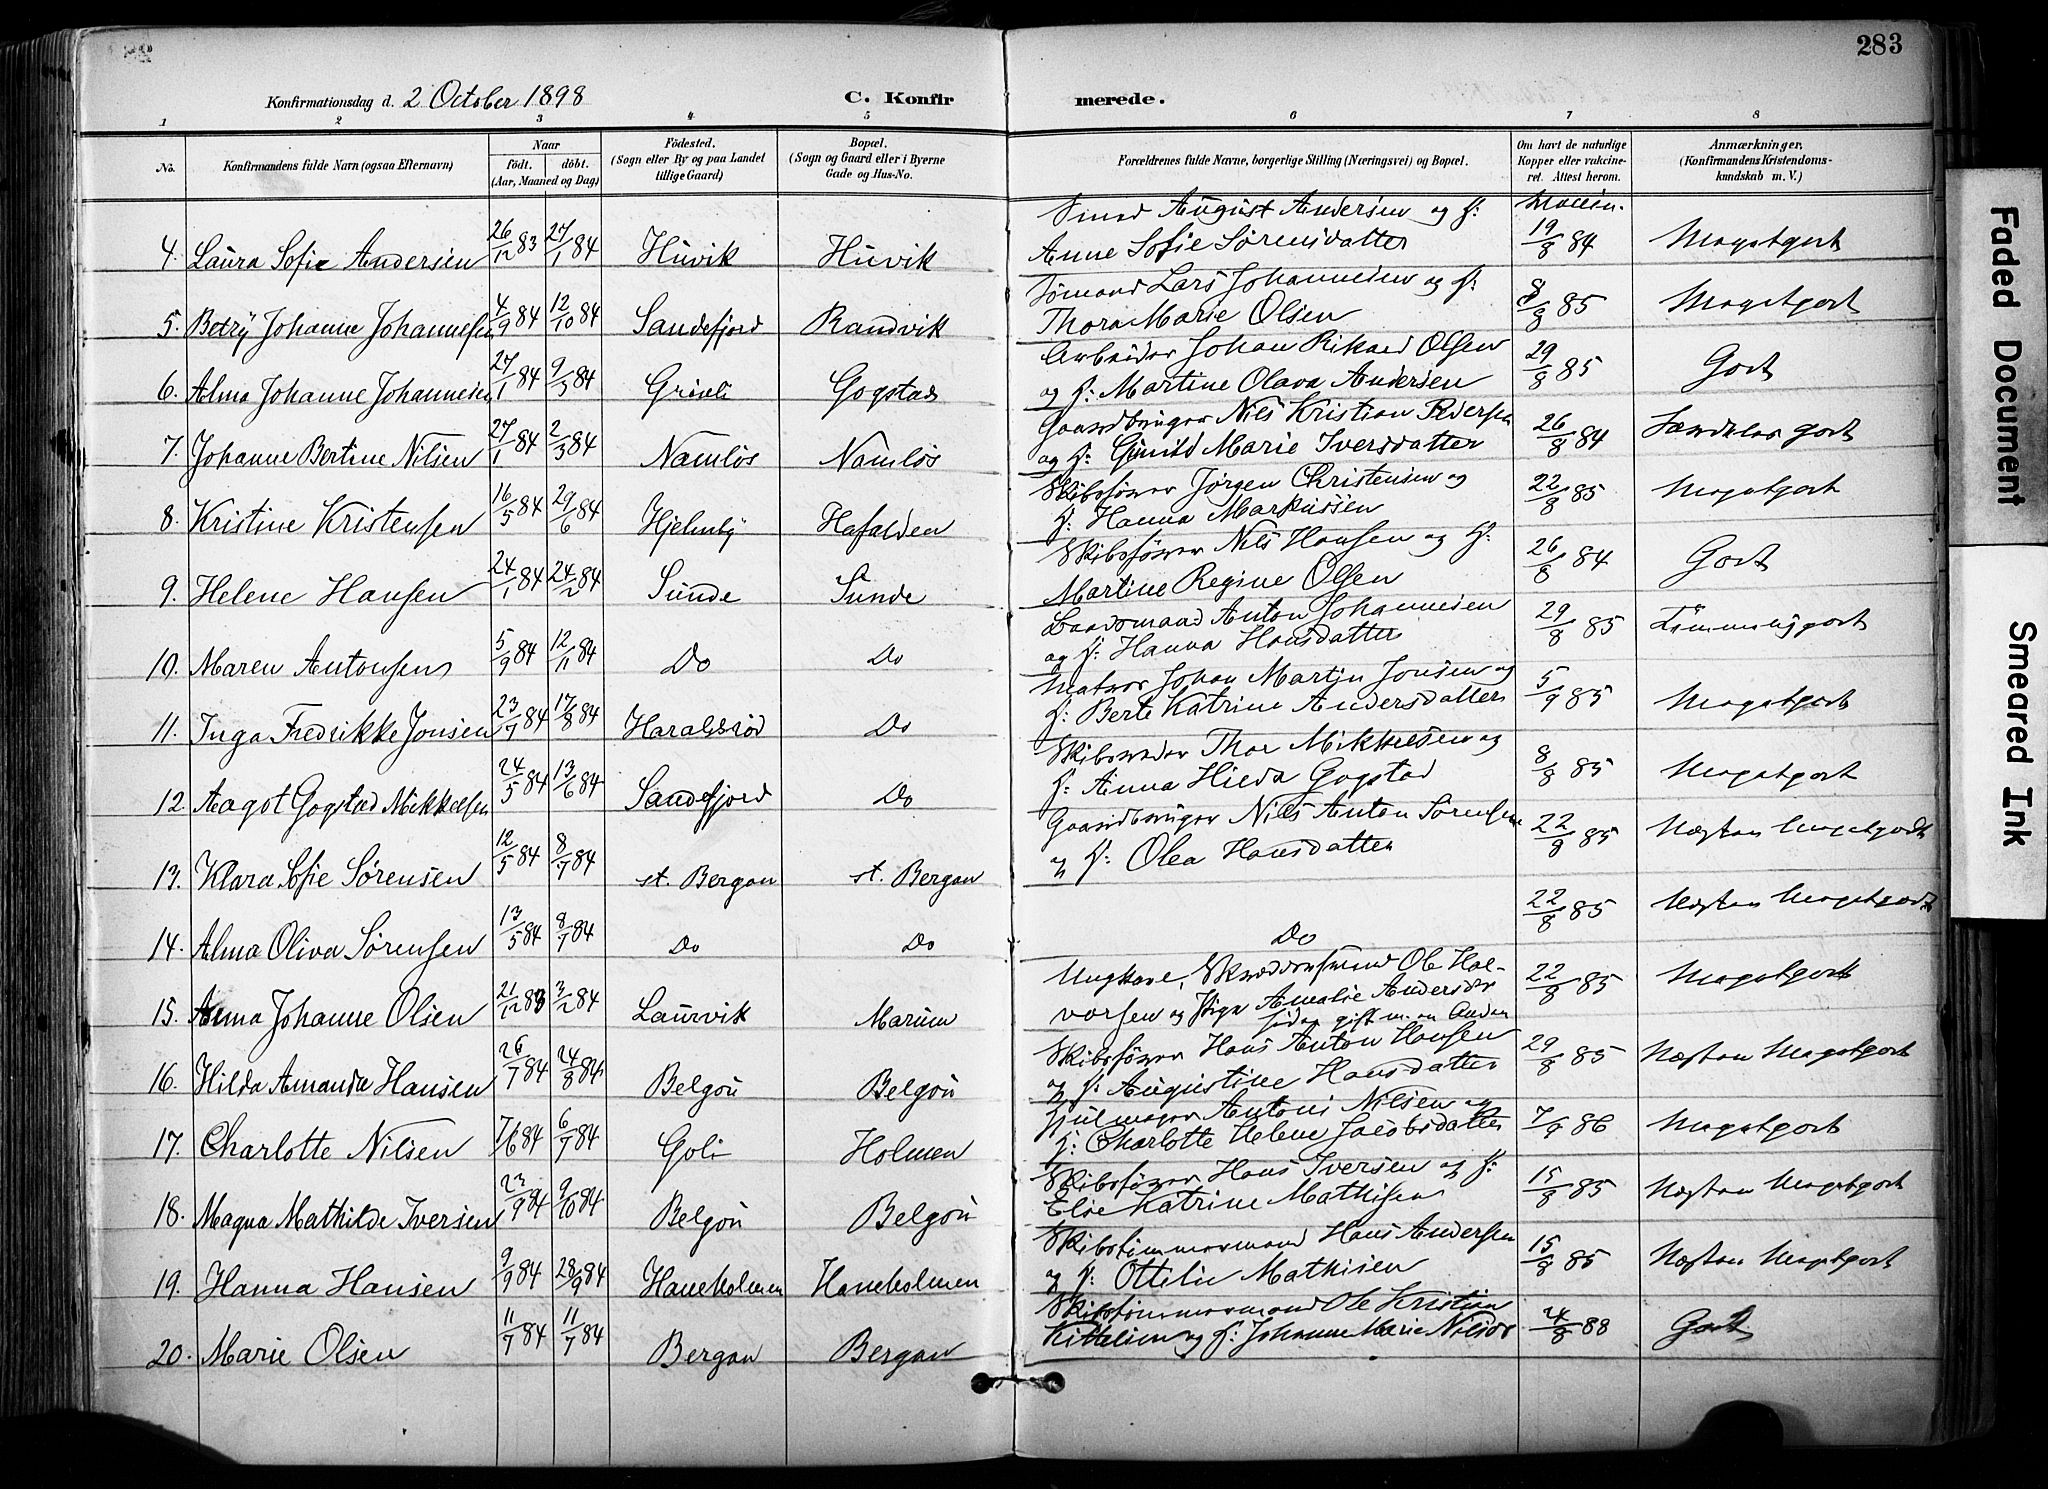 283
Konfirmationsdag d. 2 October 1898 C. Konfirmerede.
1 2 3 4 5 6 7 8
No. Konfirmandens fulde Navn (ogsaa Efternavn) Naar født. døbt. (Aar, Maaned og Dag) Fødested. (Sogn eller By og paa Landet tillige Gaard) Bopæl. (Sogn og Gaard eller i Byerne Gade og Hus-No. Forældrenes fulde Navne, borgerlige Stilling (Næringsvei) og Bopæl. Om havt de naturlige Kopper eller vakcineret. Attest herom. Anmærkninger. (Konfirmandens Kristendomskundskab m. V.)
Smed August Andersen og H:
4. Laura Sofie Andersen 26/12 83 27/1 84 Huvik Huvik Anne Sofie Sørensdatter 19/8 84 Megetgodt
Sømand Lars Johannesen og H:
5. Betzy Johanne Johannesen 4/9 84 12/10 84 Sandefjord Randvik Thora Marie Olsen 8/8 85 Megetgodt
Arbeider Johan Rikard Olsen
6. Alma Johanne Johannesen 27/1 84 9/3 84 Grindli Gogstad og H: Martine Olava Andersen 29/8 85 Godt
Gaardbruger Nils Kristian Pedersen
7. Johanne Bertine Nilsen 27/1 84 2/3 84 Namløs Namløs og H: Gunild Marie Iversdatter 26/8 84 Særdeles godt
Skibsfører Jørgen Christensen og
8. Kristine Kristensen 16/5 84 29/6 84 Hjelmby Hafalden H: Hanna Markussen 22/8 85 Megetgodt
Skibsfører Nils Hansen og H:
9. Helene Hansen 24/1 84 24/2 84 Sunde Sunde Martine Regine Olsen 26/8 84 Godt
Baadsmand Anton Johannesen
10. Maren Antonsen 5/9 84 12/11 84 Do Do og H: Hanna Hansdatter 29/8 85 Temmeliggodt
Matros Johan Martin Jonsen og
11. Inga Fredrikke Jonsen 23/7 84 17/8 84 Haraldsrød Do H: Berte Katrine Andersdatter 5/9 85 Megetgodt
Skibsreder Thor Mikkelsen og
12. Aagot Gogstad Mikkelsen 24/5 84 13/6 84 Sandefjord Do H: Anna Hilda Gogstad 8/8 85 Megetgodt
Gaardbruger Nils Anton Sørensen
13. Klara Sofie Sørensen 12/5 84 8/7 84 st. Bergan st. Bergan og H: Olea Hansdatter 22/8 85 Næsten Megetgodt
14. Alma Oliva Sørensen 13/5 84 8/7 84 Do Do Do 22/8 85 Næsten Megetgodt
Ungkare, Skræddersvend Ole Hal-
15. Anna Johanne Olsen 21/12 83 3/2 84 Laurvik Marum vorsen og Pige Amalie Andersdr 22/8 85 Megetgodt
siden gift m. en Anden
Skibsfører Hans Anton Hansen
16. Hilda Amanda Hansen 26/7 84 24/8 84 Belgøn Belgøn og H: Augustine Hansdatter 29/8 85 Næsten Megetgodt
Hjulmager Antoni Nilsen og
17. Charlotte Nilsen 7/6 84 6/7 84 Goli Holmen H: Charlotte Helene Jacobsdatter 7/9 86 Megetgodt
Skibsfører Hans Iversen og H:
18. Magna Mathilde Iversen 23/9 84 9/10 84 Belgøn Belgøn Elise Katrine Mathisen 15/8 85 Næsten Megetgodt
Skibstømmermand Hans Andersen
19. Hanna Hansen 9/9 84 28/9 84 Haneholmen Haneholmen og H: Ottelie Mathisen 15/8 85 Næsten Megetgodt
Skibstømmermand Ole Kristian
20. Marie Olsen 11/7 84 11/7 84 Bergan Bergan Kittelsen og H: Johanne Marie Nilsdr 24/8 88 Godt
Faded Document
Smeared Ink